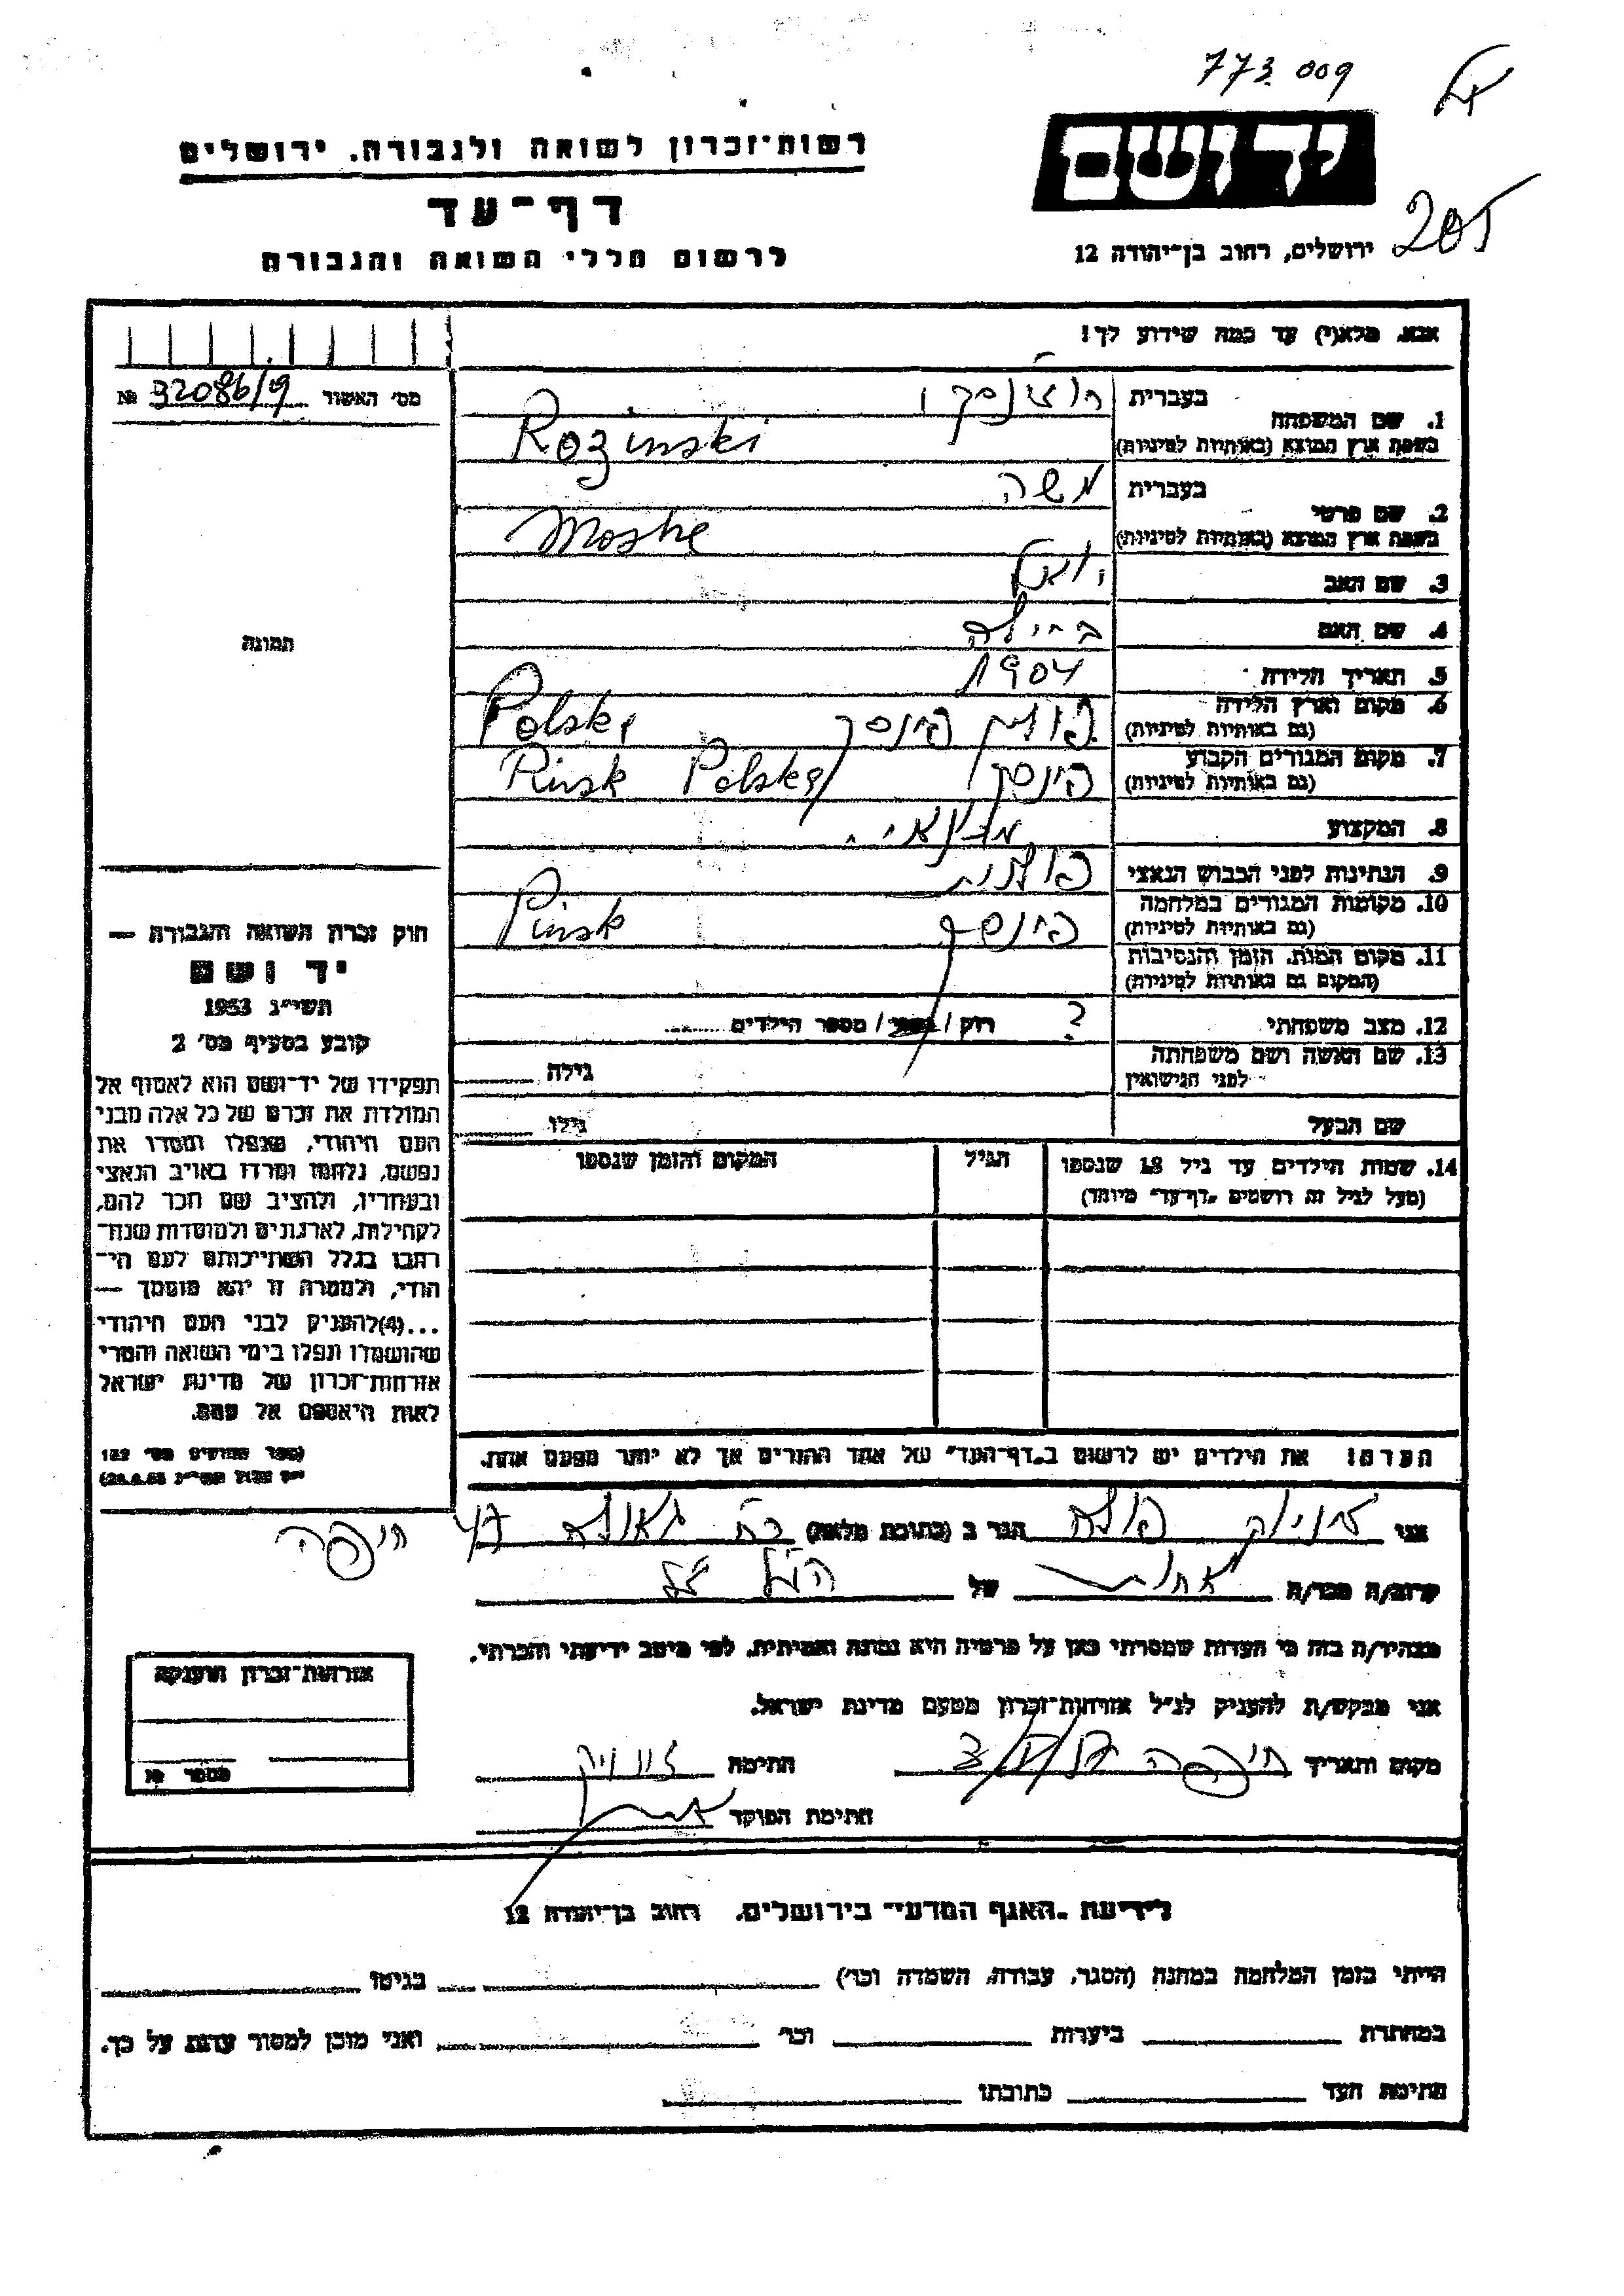 773 009
205
יד ושם
ירושלים, רחוב בן־יהודה 12
רשות־זכרון לשואה ולגבורה. ירושלים
דף־עד
לרשום חללי השואה והגבורה
אנא. מלא(י) עד כמה שידוע לך!
מס׳ האשור № 32086/9
1. שם המשפחה
בעברית
בשפת ארץ המוצא (באותיות לטיניות) Rozinski
2. שם פרטי
בעברית משה
בשפת ארץ המוצא (באותיות לטיניות) Moshe
3. שם האב
4. שם האם
5. תאריך הלידה 1904
6. מקום וארץ הלידה פינסק
(גם באותיות לטיניות) Polska
7. מקום המגורים הקבוע פינסק
(גם באותיות לטיניות) Pinsk Polska
8. המקצוע
9. הנתינות לפני הכבוש הנאצי פולנית
10. מקומות המגורים במלחמה פינסק
(גם באותיות לטיניות) Pinsk
11. מקום המות. הזמן והנסיבות
(המקום גם באותיות לטיניות)
12. מצב משפחתי ? רוק / נשוי / מספר הילדים
13. שם האשה ושם משפחתה
לפני הנישואין
גילה
שם הבעל
גילו
14. שמות הילדים עד גיל 18 שנספו
(מעל לגיל זה רושמים „דף־עד״ מיוחד)
הגיל
המקום והזמן שנספו
הערה! את הילדים יש לרשום ב„דף־העד״ של אחד ההורים אך לא יותר מפעם אחת.
תמונה
חוק זכרון השואה והגבורה —
יד ושם
תשי״ג 1953
קובע בסעיף מס׳ 2
תפקידו של יד־ושם הוא לאסוף אל
המולדת את זכרם של כל אלה מבני
העם היהודי, שנפלו ומסרו את
נפשם, נלחמו ומרדו באויב הנאצי
ובעוזריו, ולהציב שם וזכר להם,
לקהילות, לארגונים ולמוסדות שנח־
רבו בגלל השתייכותם לעם הי־
הודי, ולמטרה זו יהא מוסמך —
...(4)להעניק לבני העם היהודי
שהושמדו ונפלו בימי השואה והמרי
אזרחות־זכרון של מדינת ישראל
לאות היאספם אל עמם.
(ספר החוקים מס׳ 132
אני הגר ב (כתובת מלאה) חיפה
קרוב/ה מכר/ה אחות של הנ״ל
מצהיר/ה בזה כי העדות שמסרתי כאן על פרטיה היא נכונה ואמיתית, לפי מיטב ידיעתי והכרתי.
אני מבקש/ת להעניק לנ״ל אזרחות־זכרון מטעם מדינת ישראל.
מקום ותאריך חיפה חתימה
חתימת הפוקד
אזרחות־זכרון הוענקה
מספר №
לידיעת „האגף המדעי״ בירושלים. רחוב בן־יהודה 12
הייתי בזמן המלחמה במחנה (הסגר, עבודה, השמדה וכו׳) בגיטו
במחתרת ביערות וכו׳ ואני מוכן למסור עדות על כך.
חתימת העד כתובתו